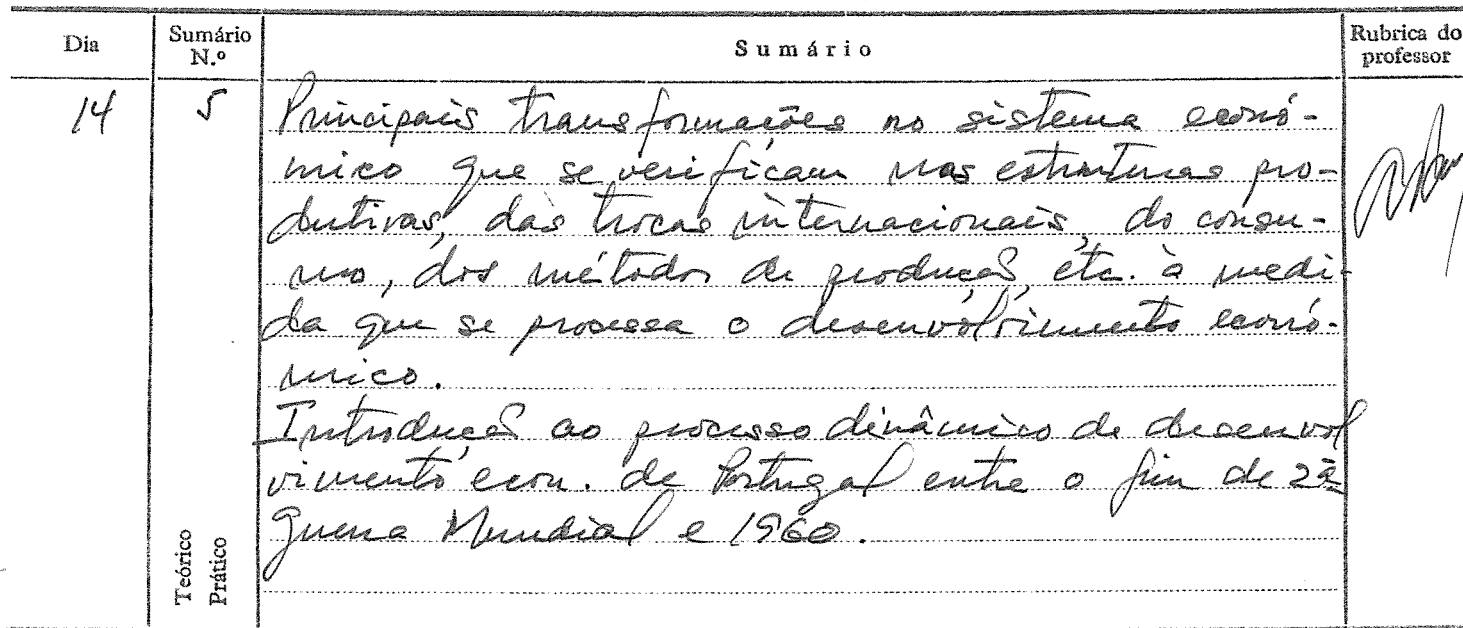 Dia
Sumário N.º
Sumário
Rubrica do professor
14
5
Principais transformações no sistema econó-
mico que se verificam nas estruturas pro-
dutivas, das trocas internacionais, do consu-
mo, dos métodos de produção, etc. à medi-
da que se processa o desenvolvimento econó-
mico.
Introdução ao processo dinâmico de desenvol
vimento econ. de Portugal entre o fim de 2ª
Guerra Mundial e 1960.
Teórico
Prático